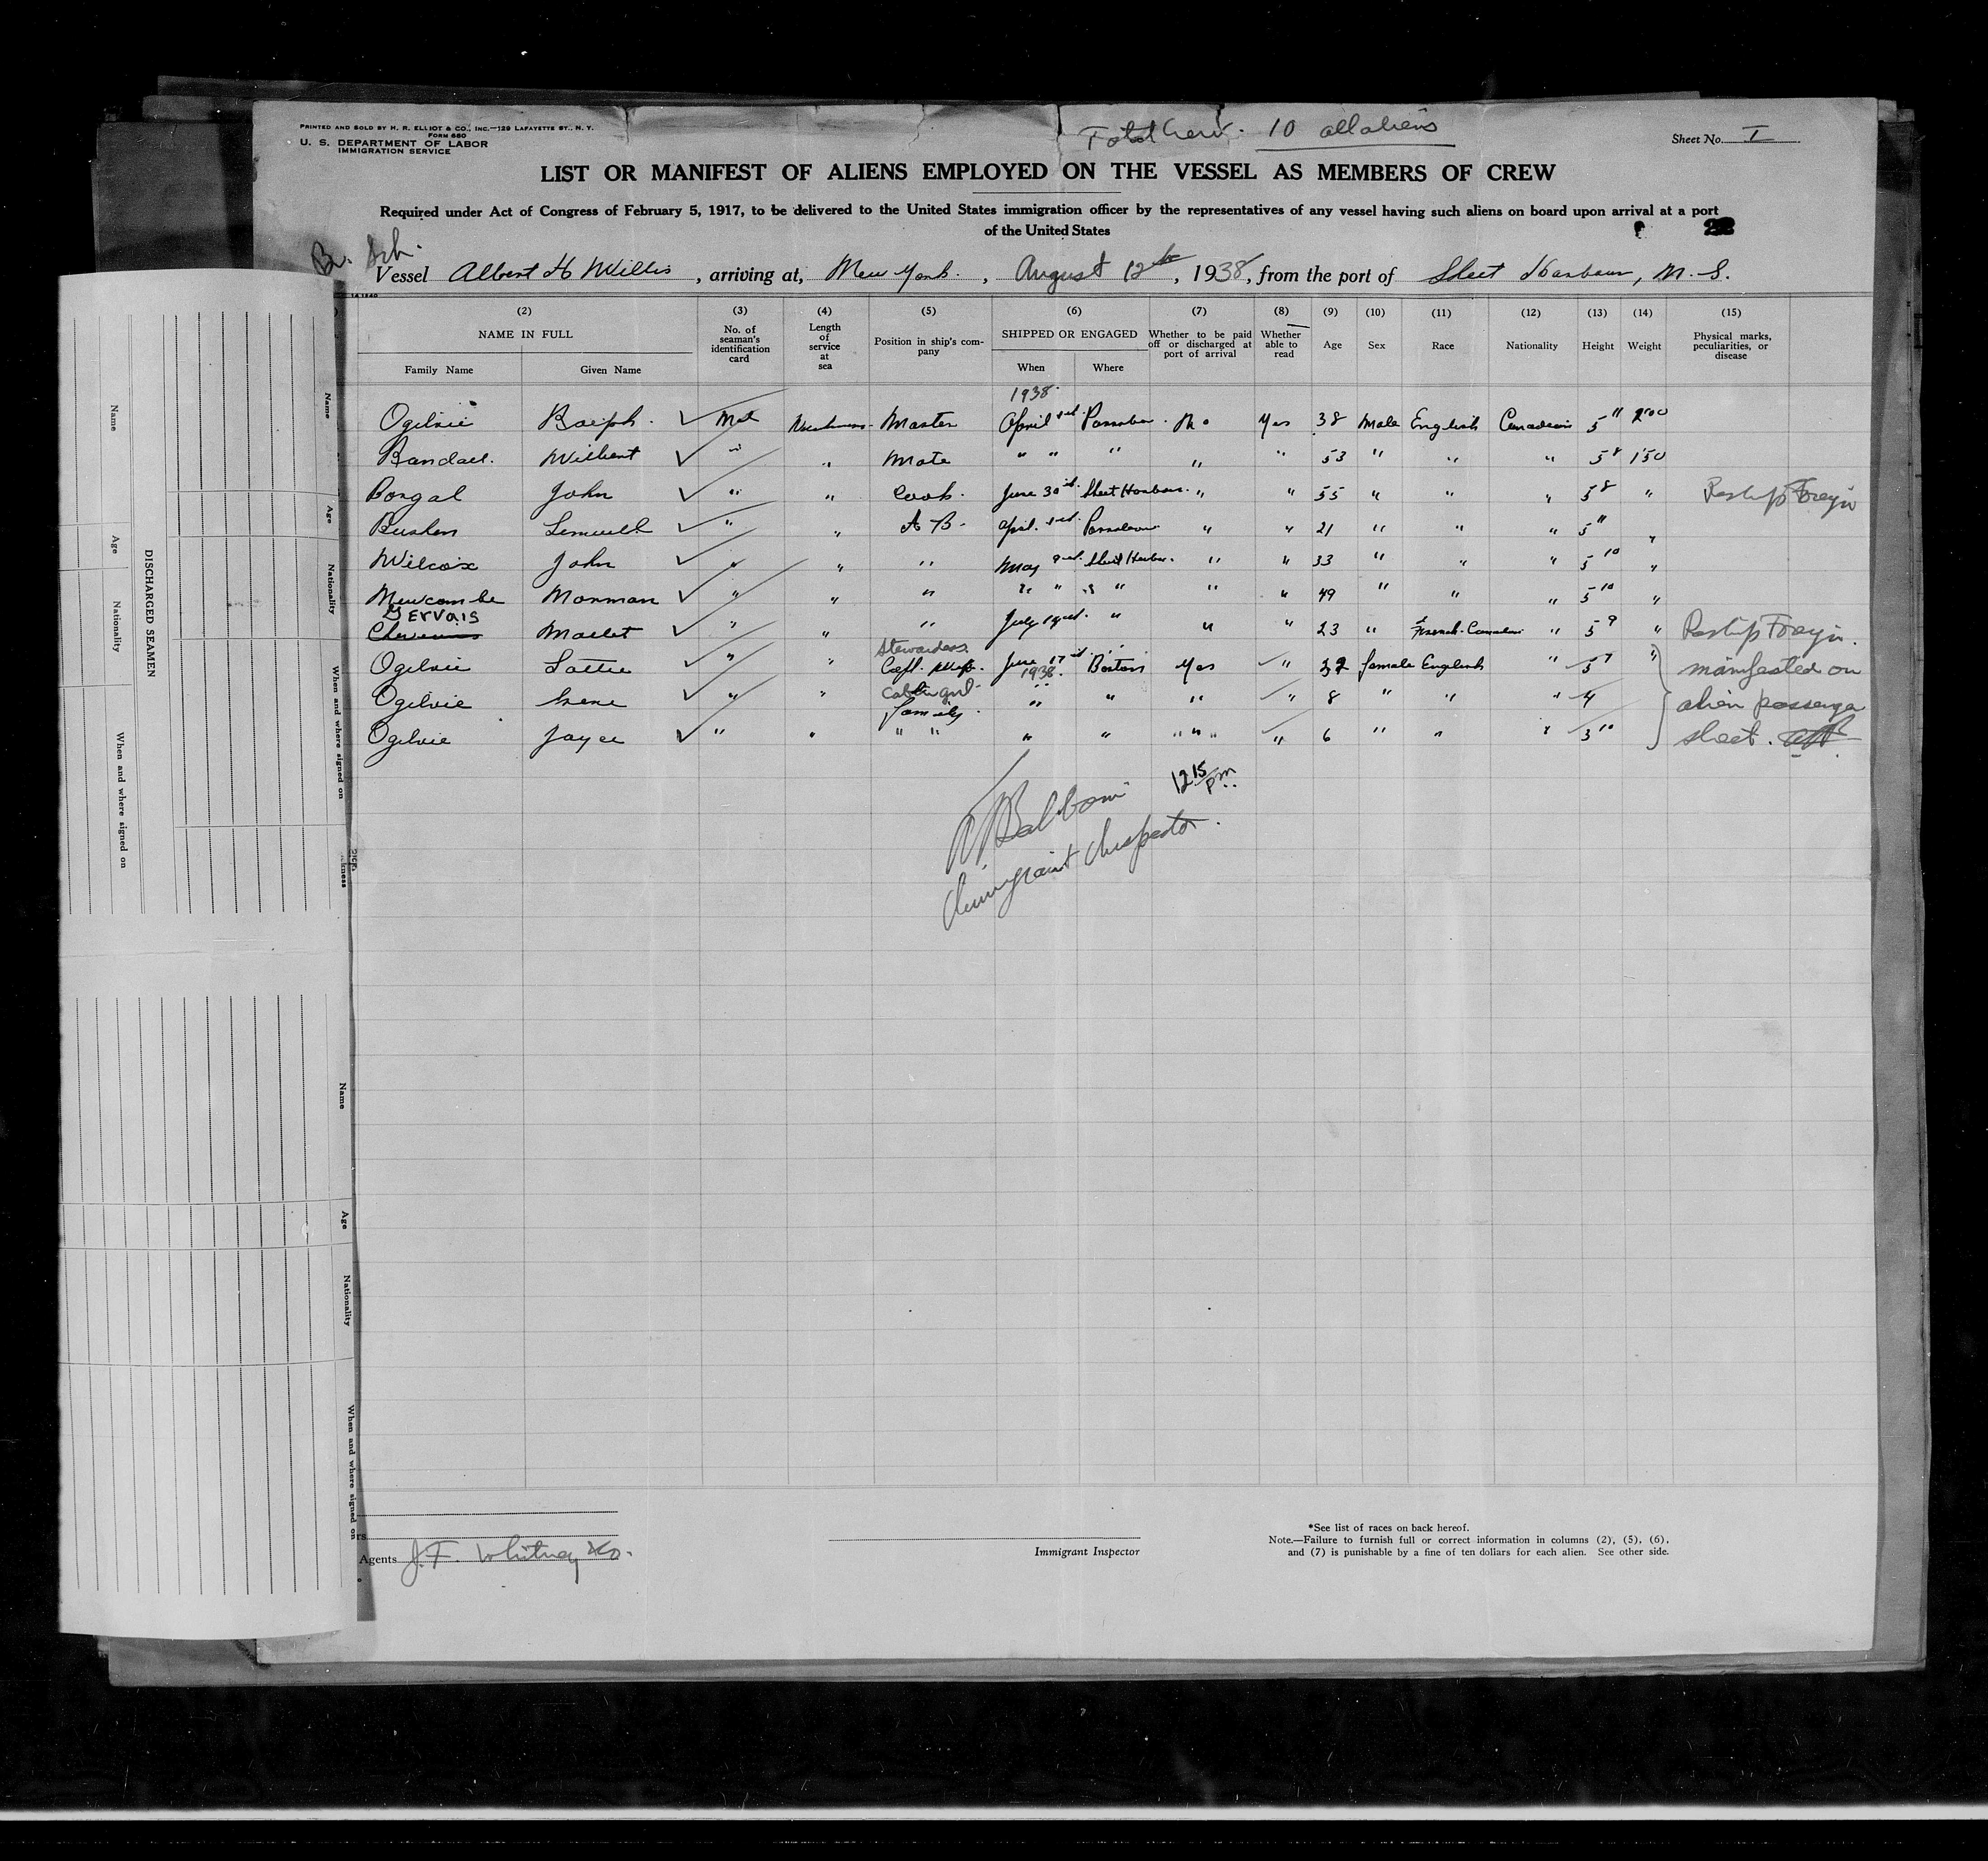 PRINTED AND SOLD BY H. R. ELLIOT & CO., INC.—129 LAFAYETTE ST., N. Y.
FORM 680
U. S. DEPARTMENT OF LABOR
IMMIGRATION SERVICE
Total Crew. 10 all aliens
Sheet No. I
LIST OR MANIFEST OF ALIENS EMPLOYED ON THE VESSEL AS MEMBERS OF CREW
Required under Act of Congress of February 5, 1917, to be delivered to the United States immigration officer by the representatives of any vessel having such aliens on board upon arrival at a port
of the United States
Br. Sch.
Vessel Albert H Willis, arriving at, New York, August 12th, 1938, from the port of Sheet Harbour, N. S.
(2) (3) (4) (5) (6) (7) (8) (9) (10) (11) (12) (13) (14) (15)
NAME IN FULL
Family Name Given Name
No. of seaman's identification card
Length of service at sea
Position in ship's company
SHIPPED OR ENGAGED
When Where
Whether to be paid off or discharged at port of arrival
Whether able to read
Age Sex Race Nationality Height Weight
Physical marks, peculiarities, or disease
1938
Ogilvie Ralph Master April Parrsboro No Yes 38 Male English Canadian 5 11 200
Randall Wilbert " " Mate " " " " " 53 " " " 5 8 150
Bongal John " " Cook June 30 Sheet Harbour " " 55 " " " 5 8 " Reship Foreign
Lemuel " " A B April Parrsboro " " 21 " " " 5 11 "
Wilcox John " " " May Sheet Harbor " " 33 " " " 5 10 "
Newcombe Norman " " " " " " " " " 49 " " " 5 10 "
GERVAIS
Mallet " " " July " " " 23 " French-Canadian " 5 9 " Reship Foreign
Stewardess
Ogilvie Lottie " " Capt. wife June 17 1938 Boston Yes " 32 female English " 5 7 " manifested on
Cabin girl
Ogilvie Irene " " family " " " " 8 " " " 4 alien passenger
Ogilvie Joyce " " " " " " " " " 6 " " " 3 10 sheet.
12 15 pm
Balboni
Immigrant Inspector
Agents J. F. Whitney & Co.
Immigrant Inspector
*See list of races on back hereof.
Note.—Failure to furnish full or correct information in columns (2), (5), (6),
and (7) is punishable by a fine of ten dollars for each alien. See other side.
DISCHARGED SEAMEN
Name
Age
Nationality
When and where signed on
Name
Age
Nationality
When and where signed on
Name
Age
Nationality
When and where signed on